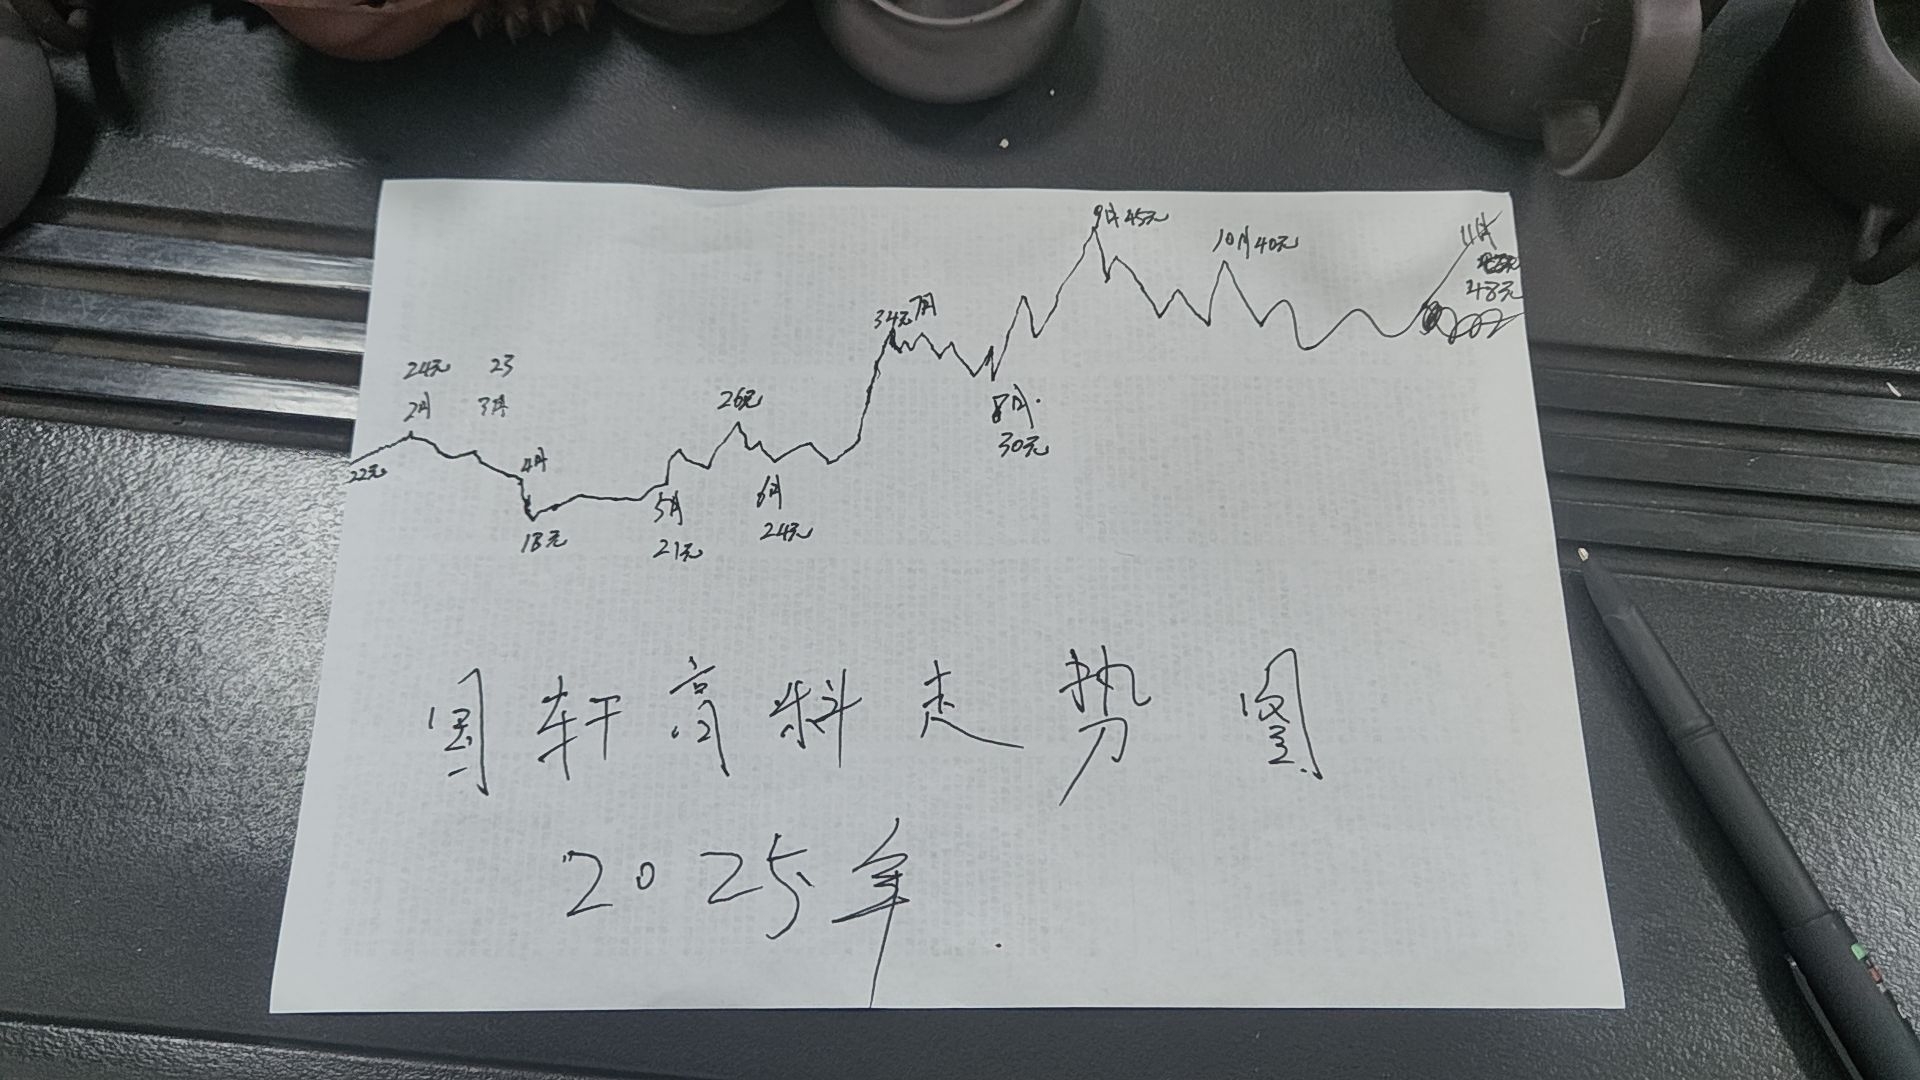 9月 45元
10月 40元
11月
48元
34元 7月
24元 23
2月 3月
26元
8月
30元
22元
4月
18元
5月
21元
6月
24元
国轩高科走势图
2025年